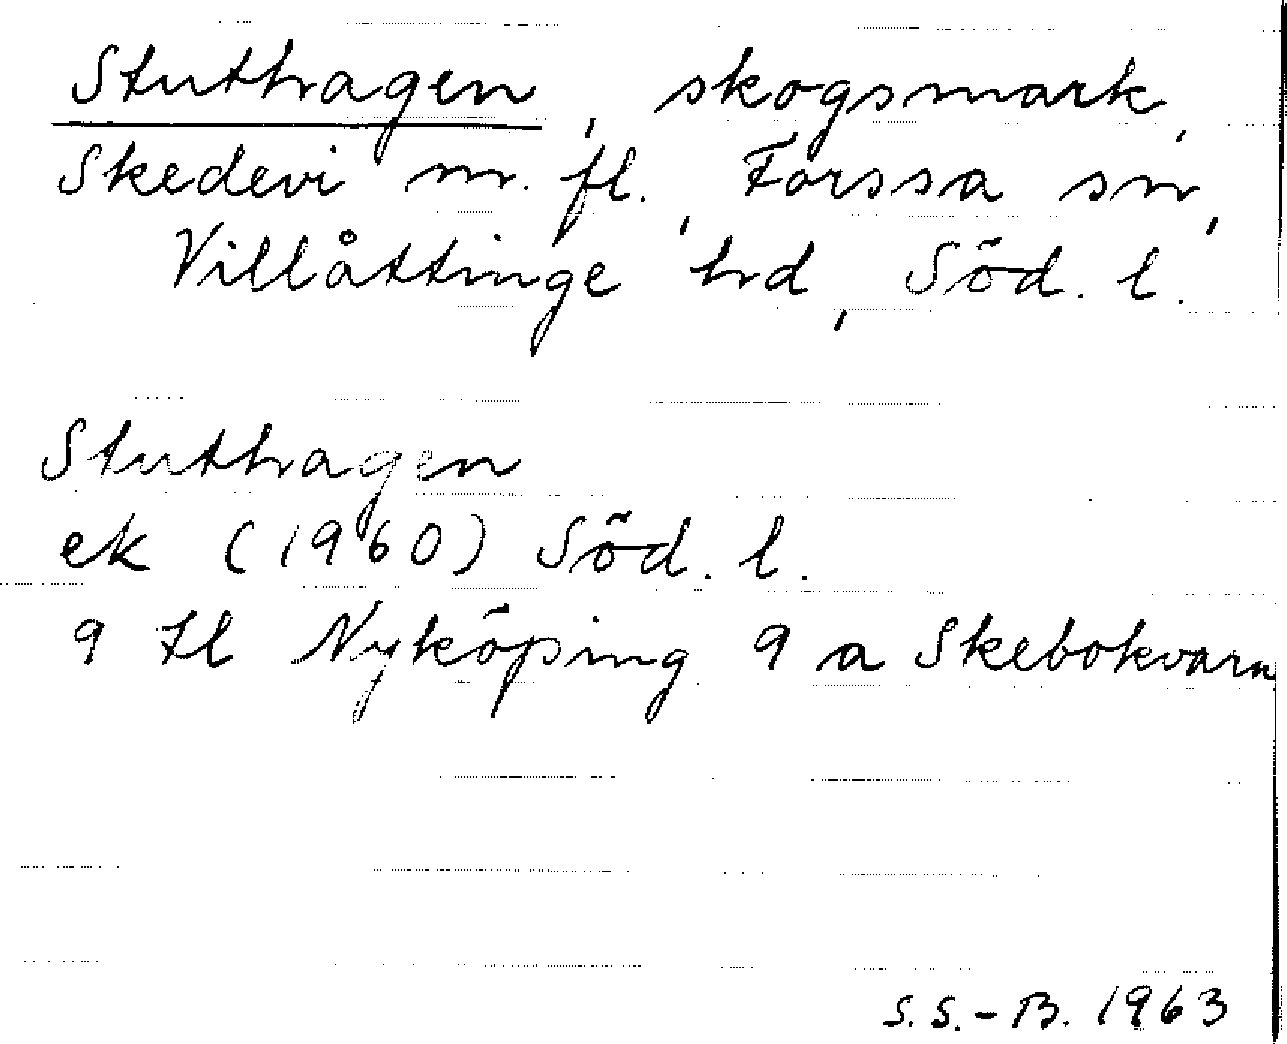 Stuthagen, skogsmark,
Skedevi m. fl., Forssa sn,
Villåttinge hd, Söd. l.
Stuthagen
ek (1960) Söd. l.
9 H Nyköping 9 a Skebokvarn
S. S.-B. 1963